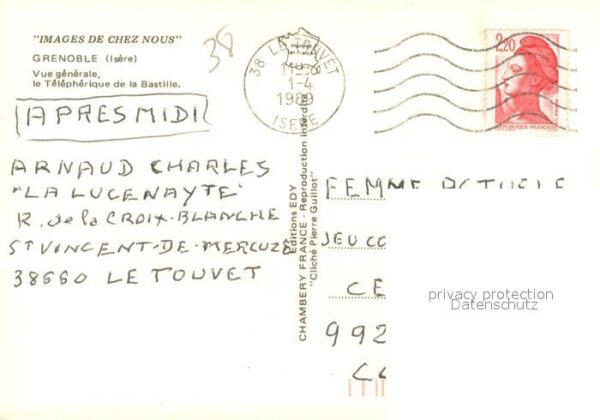 "IMAGES DE CHEZ NOUS"
GRENOBLE (Isère)
Vue générale,
le Téléphérique de la Bastille.
38
38 LE TOUVET
1-4
1989
ISERE
2,20
REPUBLIQUE FRANÇAISE
APRES MIDI
ARNAUD CHARLES
"LA LUCENAYTE"
R. de la CROIX-BLANCHE
ST VINCENT-DE-MERCUZE
38660 LE TOUVET
Editions EDY
CHAMBERY FRANCE - Reproduction interdite
"Cliché Pierre Guillot"
FEMME
JEU CO
CE
992
privacy protection
Datenschutz